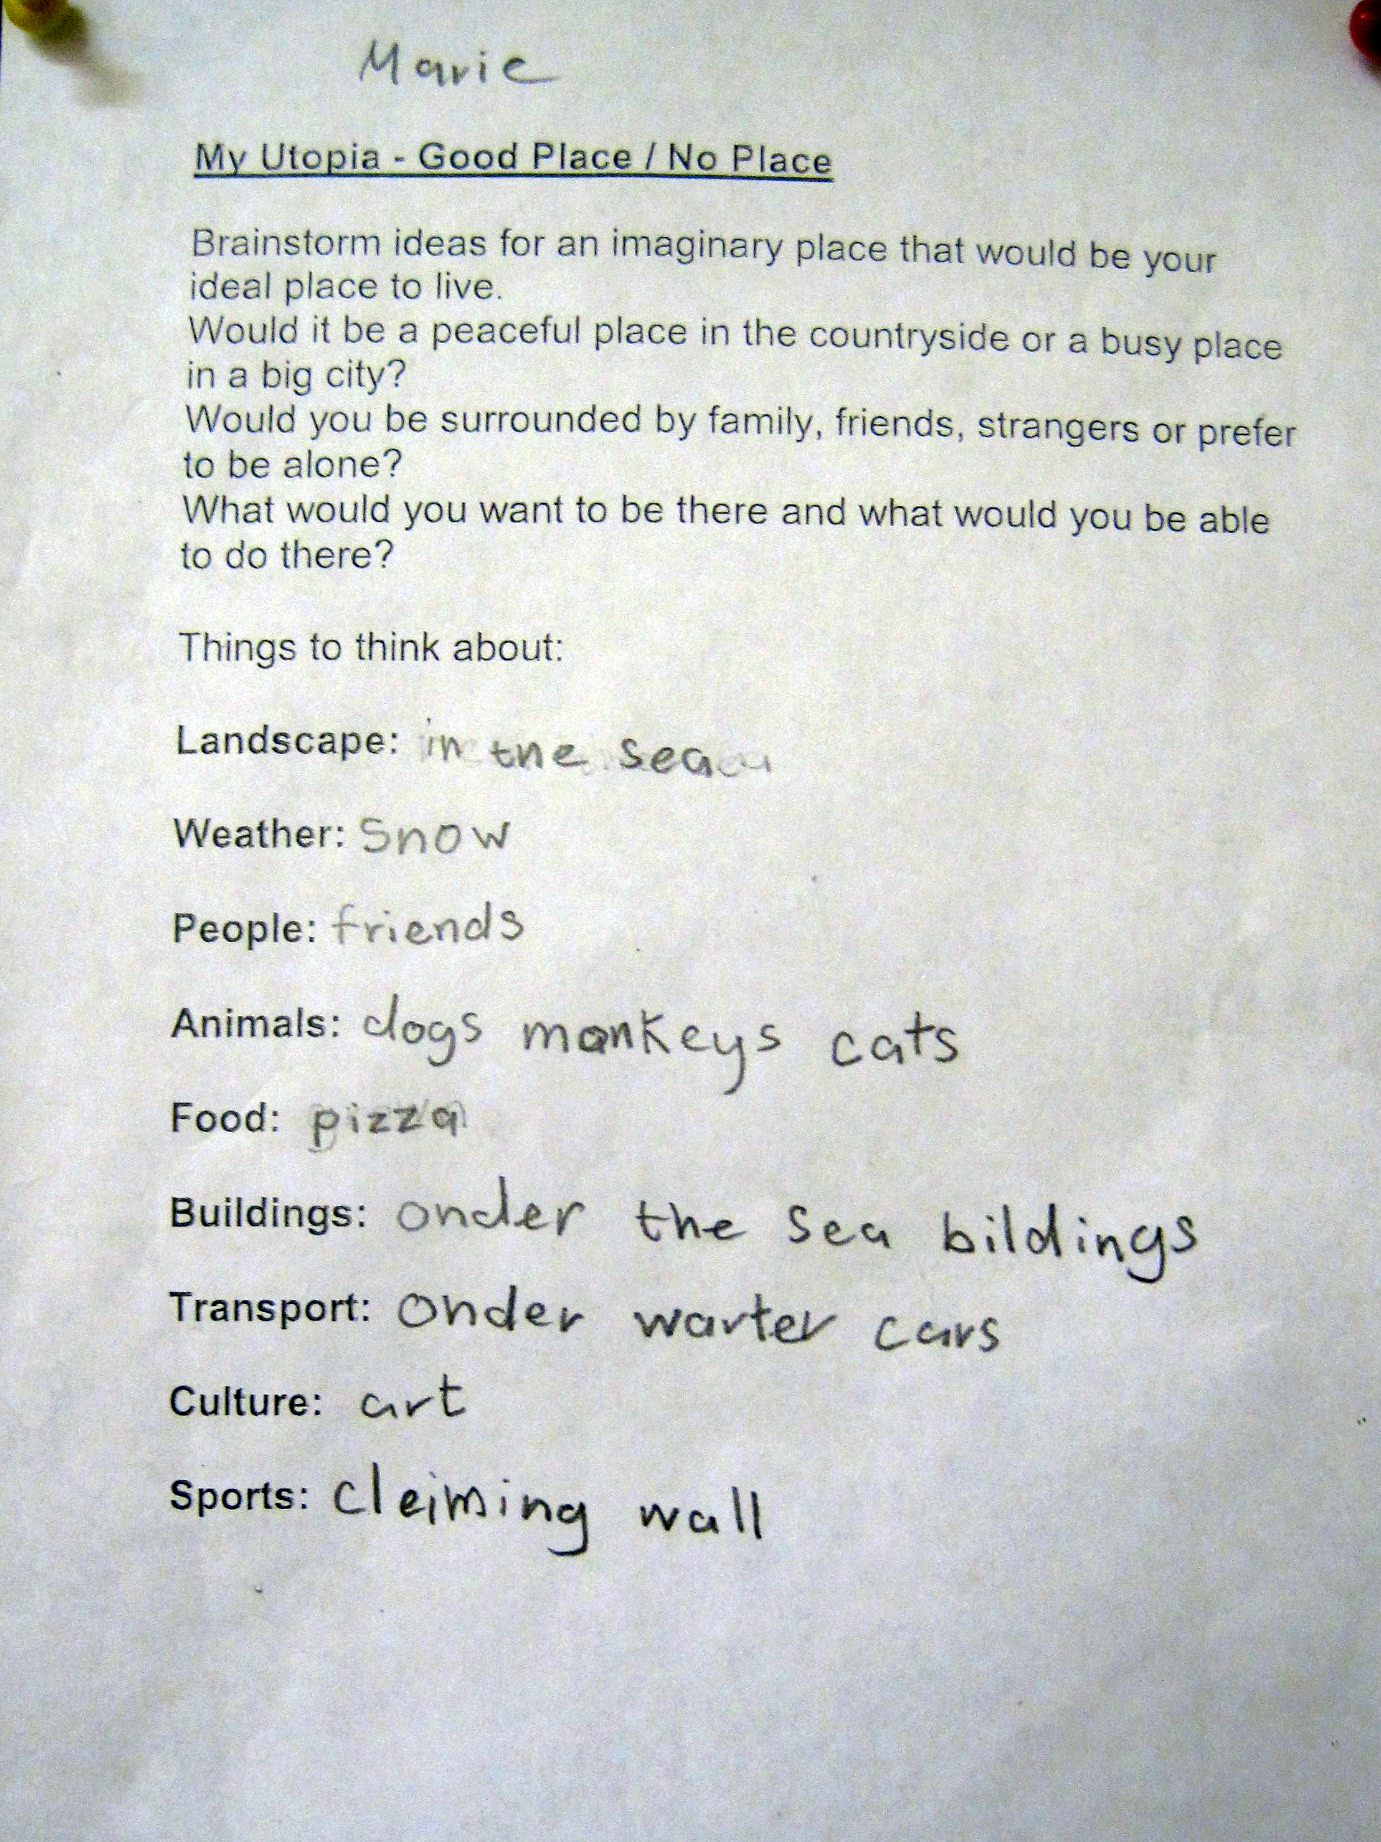 Marie
My Utopia - Good Place / No Place
Brainstorm ideas for an imaginary place that would be your
ideal place to live.
Would it be a peaceful place in the countryside or a busy place
in a big city?
Would you be surrounded by family, friends, strangers or prefer
to be alone?
What would you want to be there and what would you be able
to do there?
Things to think about:
Landscape: in the sea
Weather: Snow
People: friends
Animals: dogs monkeys cats
Food: pizza
Buildings: onder the sea bildings
Transport: onder warter cars
Culture: art
Sports: cleiming wall